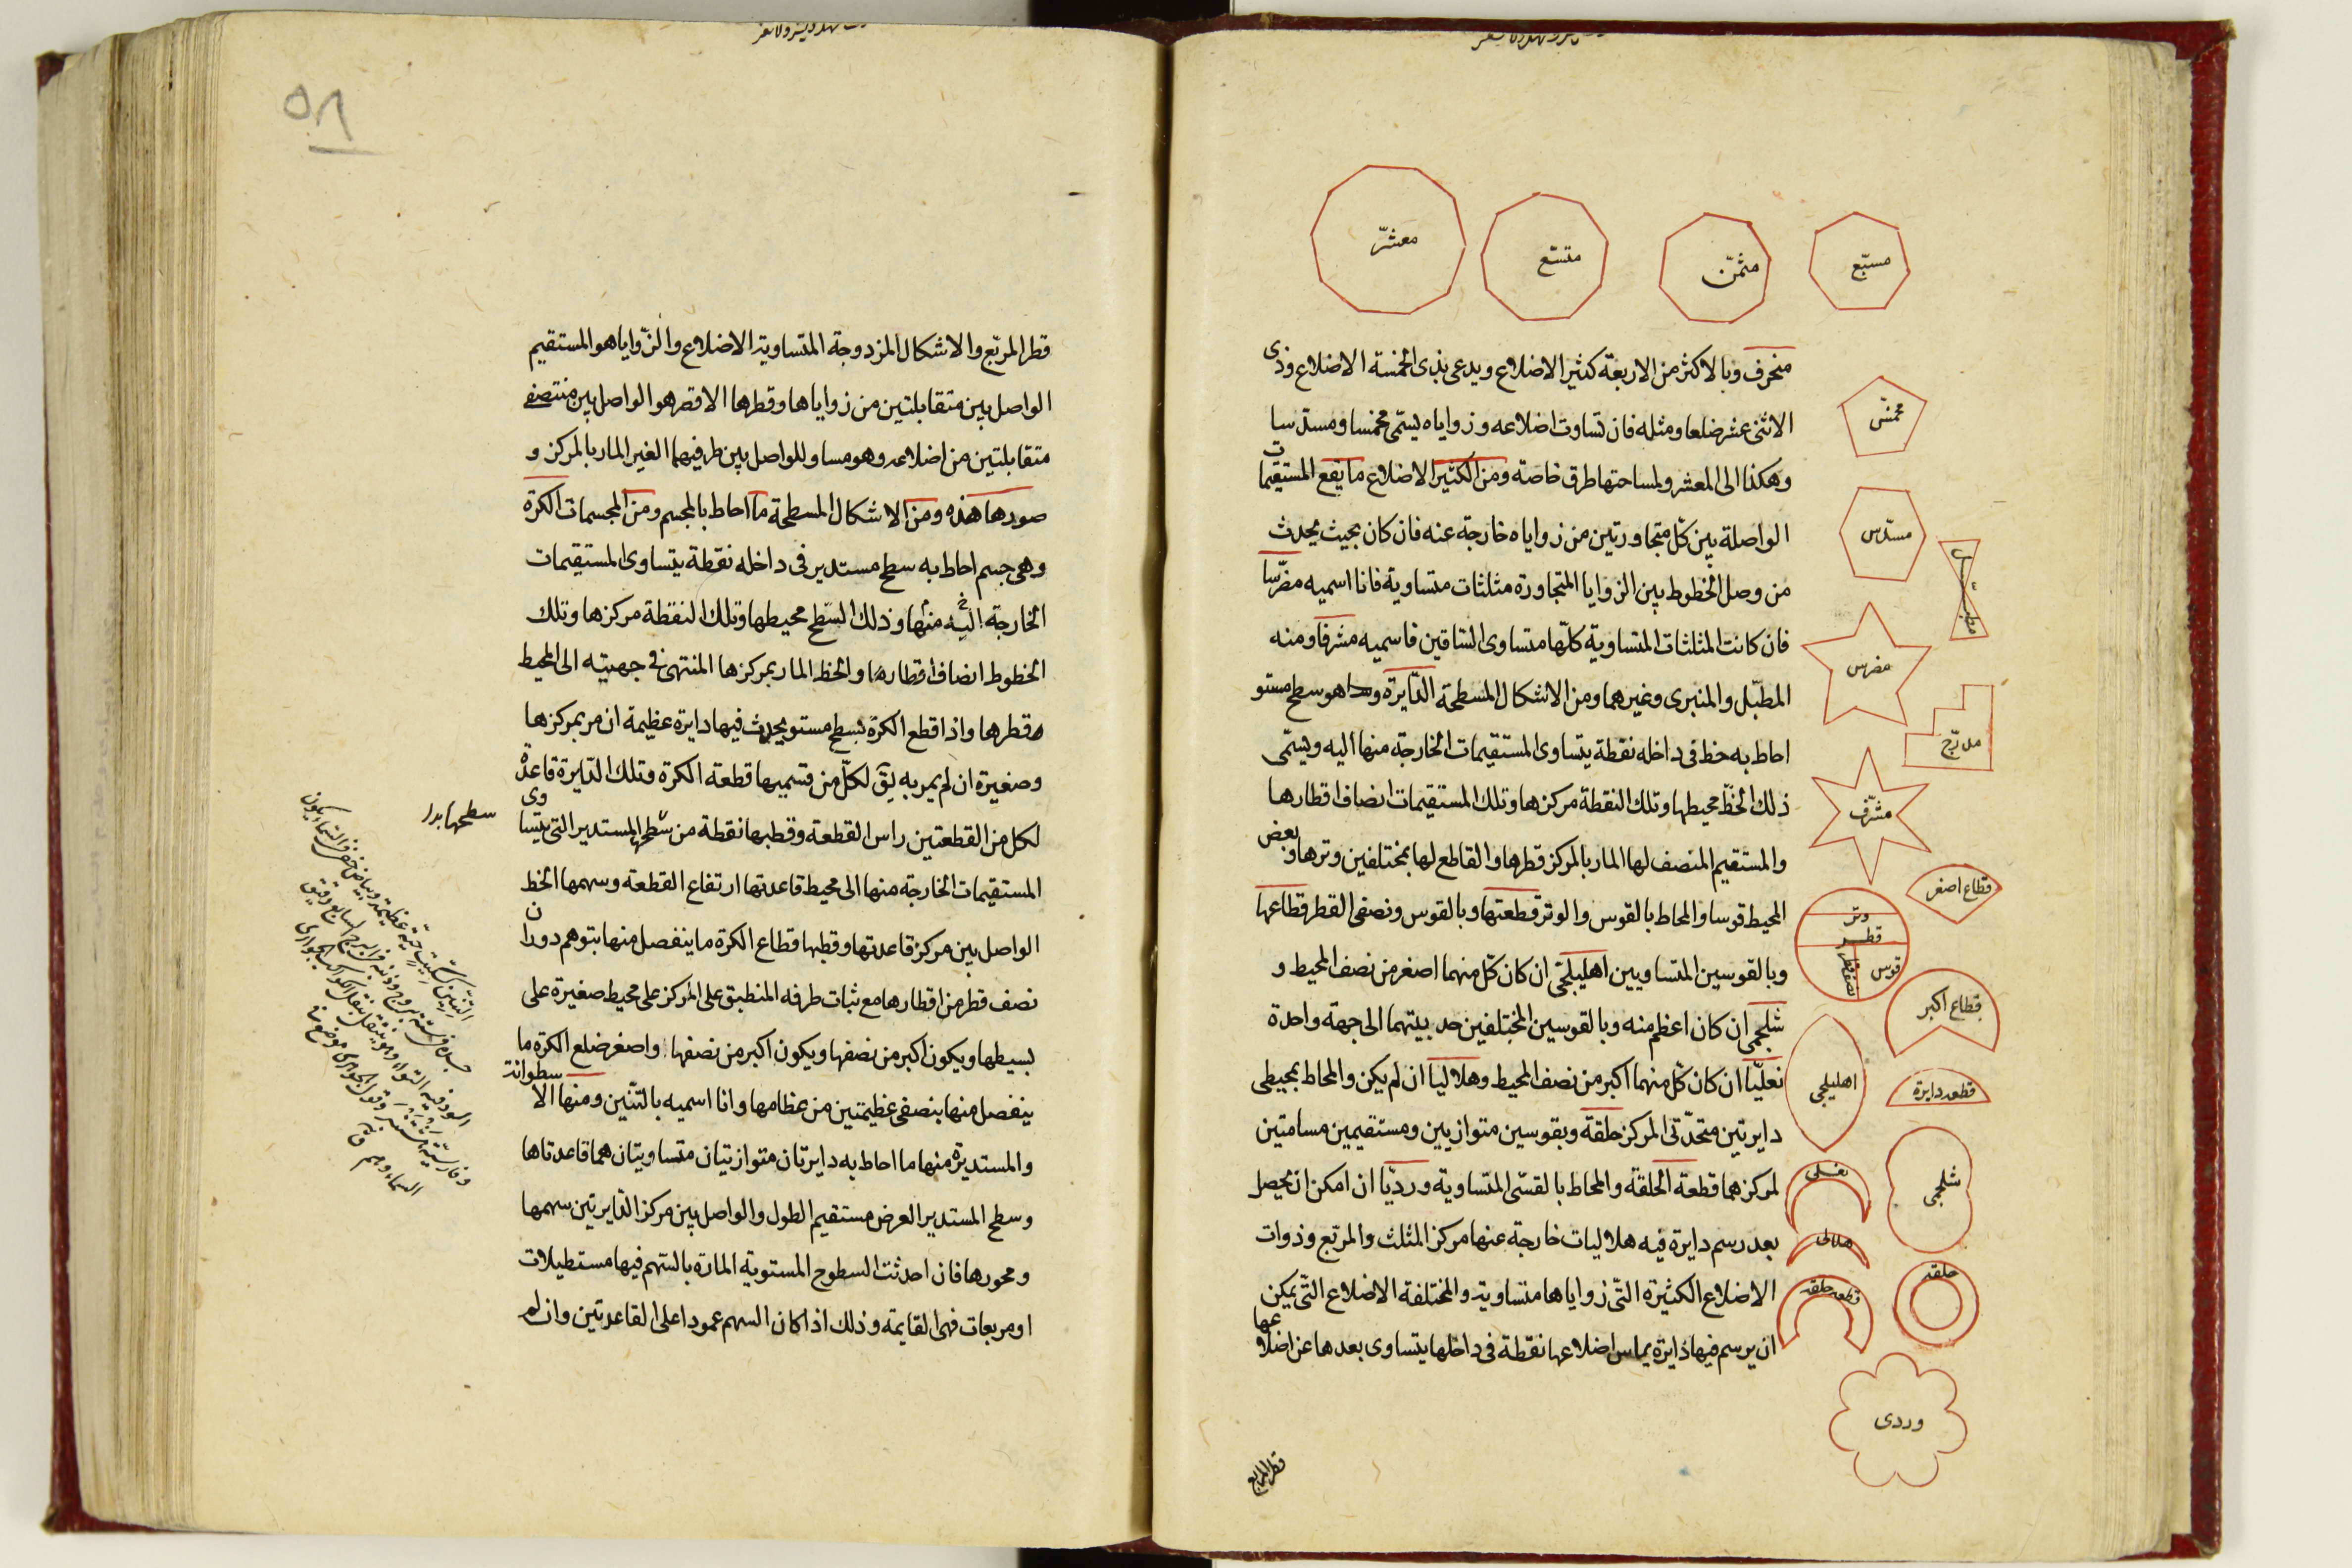 مسبّع
مثمّن
متسّع
معشّر
منحرف وبالاكثر من الاربعة كثير الاضلاع ويدعى بذى الخمسة الاضلاع وذى
الاثنى عشر ضلعا ومثله فان تساوت اضلاعه وزواياه يسمّى مخمسا ومسدسا
وهكذا الى المعشر ولمساحتها طرق خاصة ومن الكثير الاضلاع ما يقع المستقيمات
الواصلة بين كل متجاورتين من زواياه خارجة عنه فان كان بحيث يحدث
من وصل الخطوط بين الزوايا المتجاورة مثلثات متساوية فانا اسميه مضرّسا
فان كانت المثلثات المتساوية كلّها متساوى الساقين فاسميه مشرفا ومنه
المطبّل والمنبرى وغيرهما ومن الاشكال المسطحة الدّايرة وهو سطح مستو
احاط به خط فى داخله نقطة يتساوى المستقيمات الخارجة منها اليه ويسمّى
ذلك الخطّ محيطها وتلك النقطة مركزها وتلك المستقيمات انصاف اقطارها
والمستقيم المنصف لها المار بالمركز قطرها والقاطع لها بمختلفين وترها وبعض
المحيط قوسا والمحاط بالقوس والوتر قطعتها وبالقوس ونصفى القطر قطاعها
وبالقوسين المتساويين اهليلجى ان كان كل منهما اصغر من نصف المحيط و
شلجمى ان كان اعظم منه وبالقوسين المختلفين حدبيتهما الى جهة واحدة
نعليّا ان كان كل منهما اكبر من نصف المحيط وهلاليا ان لم يكن والمحاط بمحيطى
دايرتين متحدّتى المركز حلقة وبقوسين متوازيين ومستقيمين مسامتين
لمركزهما قطعة الحلقة والمحاط بالقسى المتساوية ورديّا ان امكن ان يحصل
بعد رسم دايرة فيه هلاليات خارجة عنها مركز المثلث والمربّع وذوات
الاضلاع الكثيرة التّى زواياها متساوية والمختلفة الاضلاع التّى يمكن
ان يرسم فيها دايرة يماس اضلاعها نقطة فى داخلها يتساوى بعدها عن اضلاعها
مخمّس
مسدّس
مطبّل
مضرس
مدرّج
مشرّف
قطاع اصغر
وتر
قطر
قوس
نصف قطر
قطاع اكبر
اهليلجى
قطعه دايرة
نعلى
شلجمى
هلالى
حلقه
قطعه حلقه
وردى
قطر المربّع
٥٨
قطر المربّع والاشكال المزدوجة المتساوية الاضلاع والزّوايا هو المستقيم
الواصل بين متقابلتين من زواياها وقطرها الاقصر هو الواصل بين منتصفى
متقابلتين من اضلاعه وهو مساو للواصل بين طرفيهما الغير المار بالمركز و
صورها هذه ومن الاشكال المسطحة ما احاط بالمجسم ومن المجسمات الكرة
وهى جسم احاط به سطح مستدير فى داخله نقطة يتساوى المستقيمات
الخارجة اليه منها وذلك السّطح محيطها وتلك النقطة مركزها وتلك
الخطوط انصاف اقطارها والخط المار بمركزها المنتهى فى جهتيه الى المحيط
قطرها واذا قطع الكرة بسطح مستو يحدث فيها دايرة عظيمة ان مر بمركزها
وصغيرة ان لم يمر به يق لكل من قسميها قطعة الكرة وتلك الدّايرة قاعدة
لكل من القطعتين راس القطعة وقطبها نقطة من سطحها المستدير التى يتساوى
المستقيمات الخارجة منها الى محيط قاعدتها ارتفاع القطعة وسهمها الخط
الواصل بين مركز قاعدتها وقطبها قطاع الكرة ما ينفصل منها بتوهم دوران
نصف قطر من اقطارها مع ثبات طرفه المنطبق على المركز على محيط صغيرة على
بسيطها ويكون اكبر من نصفها ويكون اكبر من نصفها واصغر ضلع الكرة ما
ينفصل منها بنصفى عظيمتين من عظامها وانا اسميه بالتنّين ومنها الاسطوانة
والمستديرة منها ما احاط به دايرتان متوازيتان متساويتان هما قاعدتاها
وسطح المستدير العرض مستقيم الطول والواصل بين مركز الدّايرتين سهمها
ومحورها فان احدثت السطوح المستوية المارة بالسّهم فيها مستطيلات
او مربعات فهى القايمة وذلك اذا كان السهم عمودا على القاعدتين وان لم
سطحها بدل